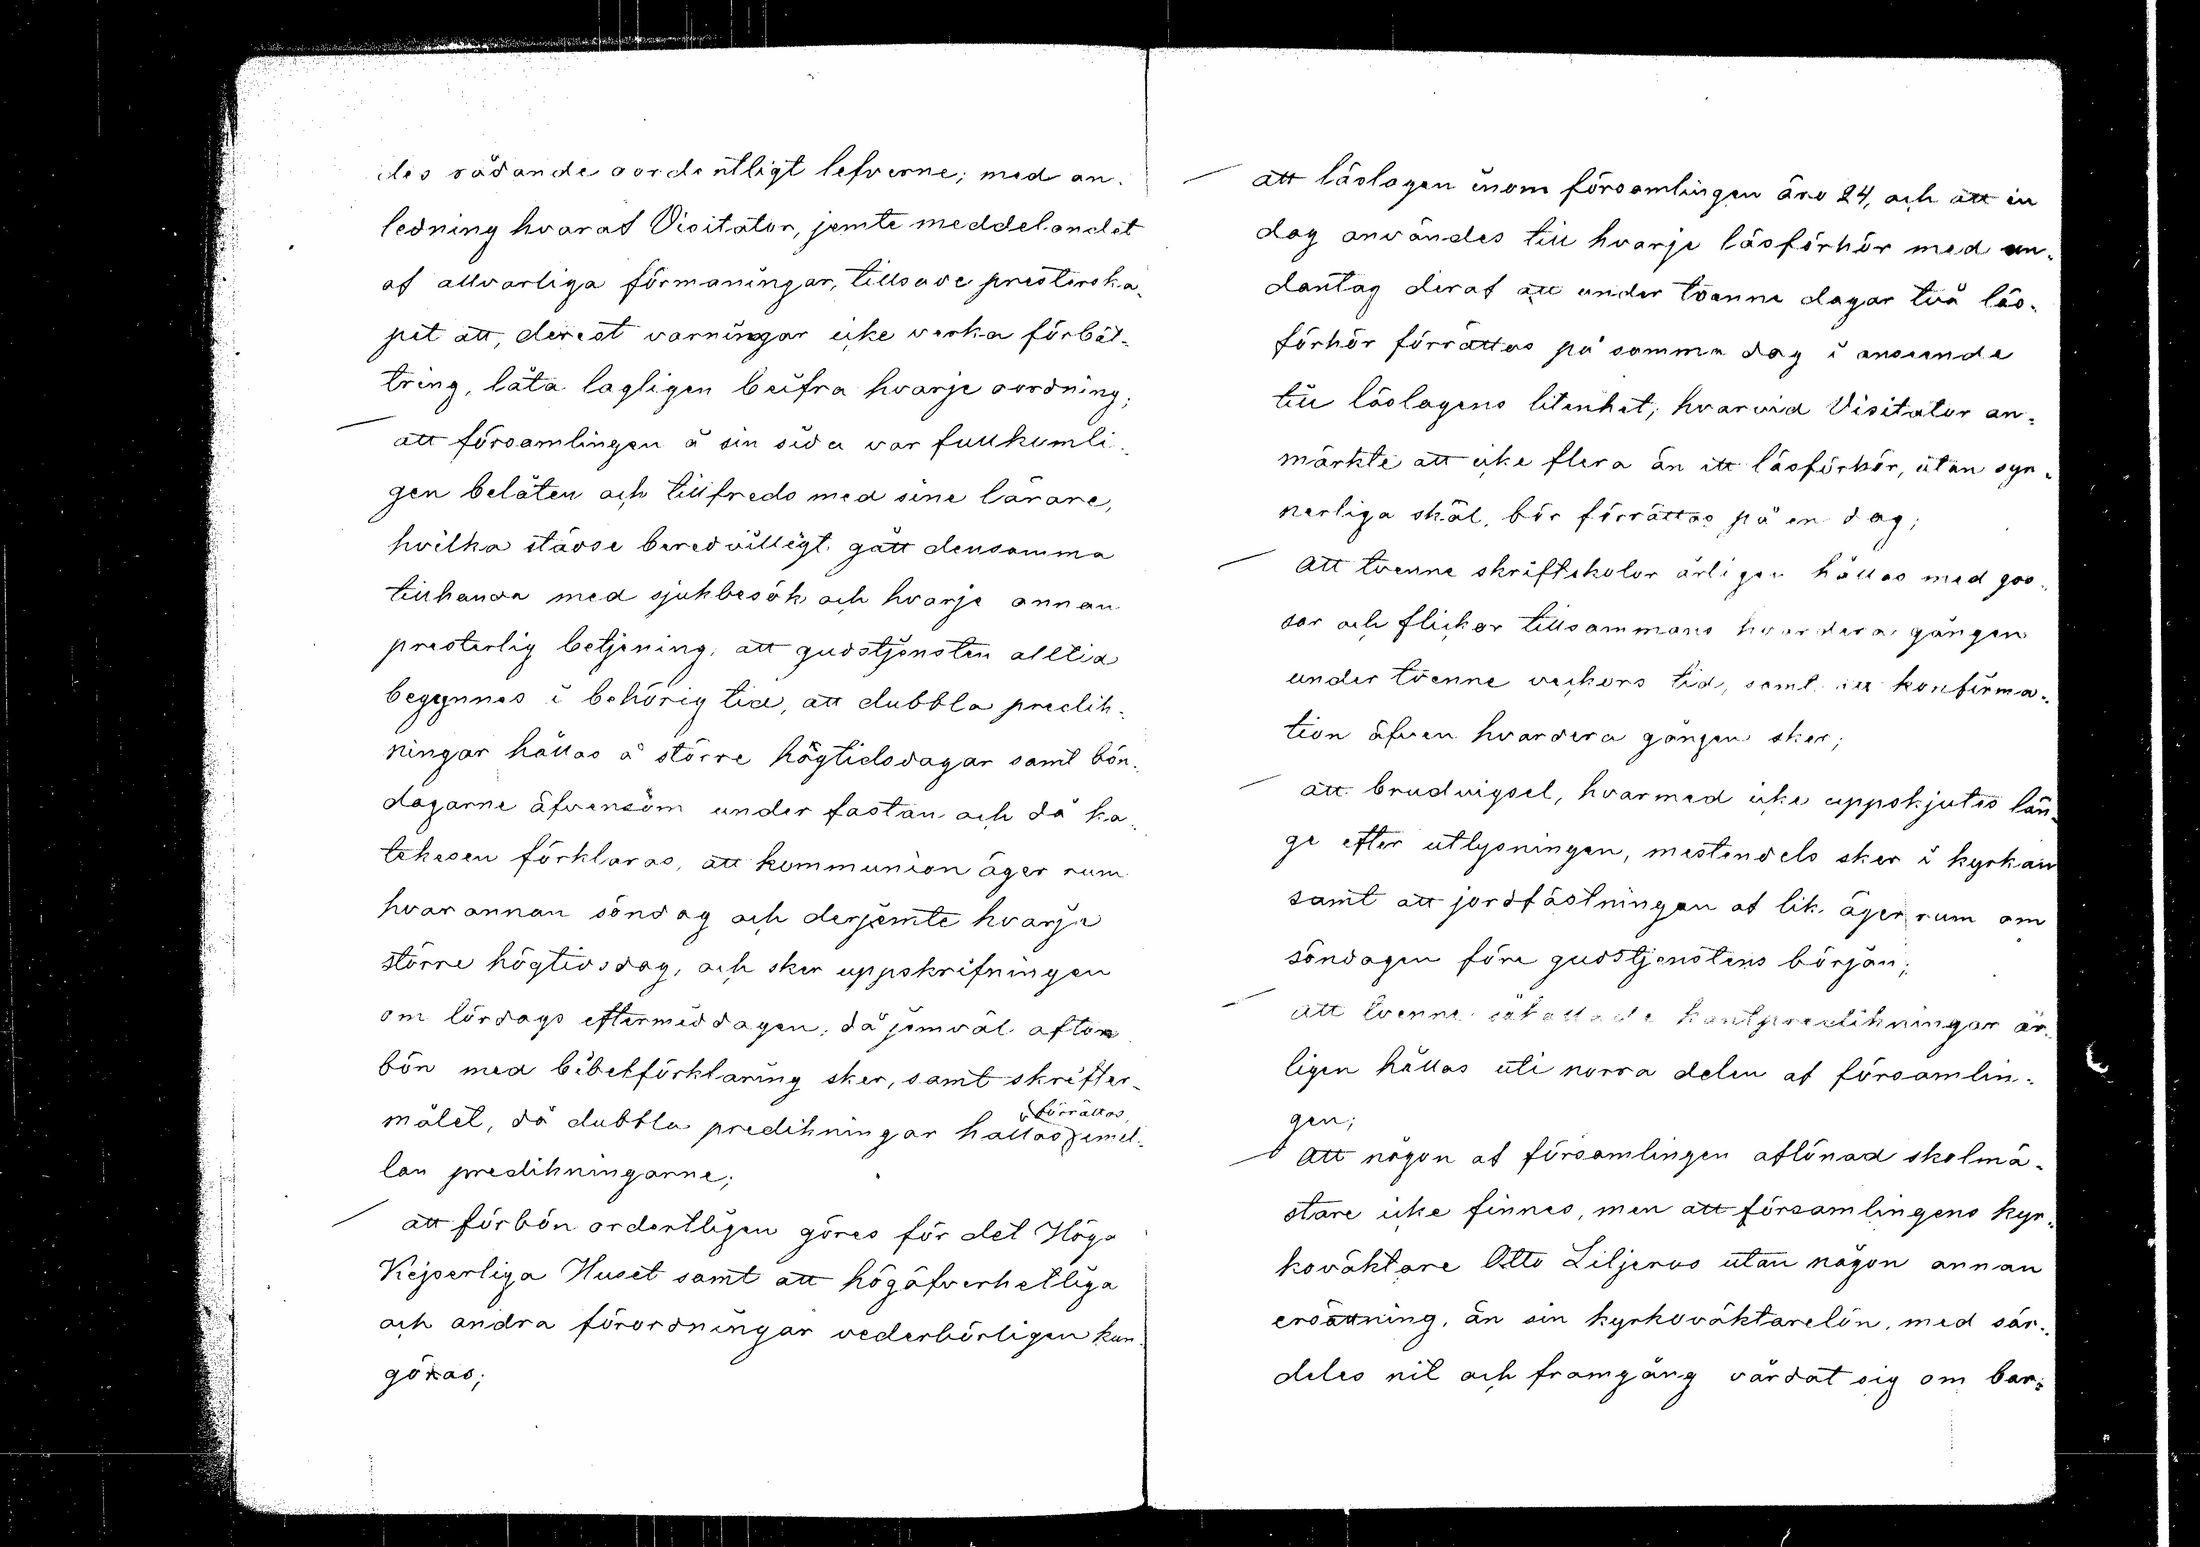 des rådande oordentligt lefverne; med an-
ledning hvaraf Visitator, jemte meddelandet
af allvarliga förmaningar, tillsade presterska-
pet att, derest varningar icke verka förbät-
tring, låta lagligen beifra hvarje oordning;
att församlingen å sin sida var fullkomli-
gen belåten och tillfreds med sine lärare,
hvilka städse beredvilligt gått densamma
tillhanda med sjukbesök och hvarje annan
presterlig betjening, att gudstjensten alltid
begynnes i behörig tid, att dubbla predik-
ningar hållas å större högtidsdagar samt bön-
dagarne äfvensom under fastan och då ka-
tekesen förklaras, att kommunion äger rum
hvarannan söndag och derjemte hvarje
större högtidsdag, och sker uppskrifningen
om lördags eftermiddagen, då jemväl afton
bön med bibelförklaring sker, samt skrifter-
målet, då dubbla predikningar hållas, förrättas, emel-
lan predikningarne;
att förbön ordentligen göres för det Höga
Kejserliga Huset samt att högöfverhetliga
och andra förordningar vederbörligen kun-
göras;
att läslagen inom församlingen äro 24, och att en
dag användes till hvarje läsförhör med un-
dantag deraf att under tvenne dagar två läs-
förhör förrättas på samma dag i anseende
till läslagens litenhet; hvarvid Visitator an-
märkte att icke flera än ett läsförhör, utan syn-
nerliga skäl, bör förrättas på en dag;
Att tvenne skriftskolor årligen hållas med gos-
sar och flickor tillsammans hvardera gången
under tvenne veckors tid, samt att konfirma-
tion äfven hvardera gången sker;
att brudvigsel, hvarmed icke uppskjutes län-
ge efter utlysningen, mestendels sker i kyrkan
samt att jordfästningen af lik äger rum om
söndagen före gudstjenstens början;
att tvenne såkallade kantpredikningar år-
ligen hållas uti norra delen af församlin-
gen;
Att någon af församlingen aflönad skolmä-
stare icke finnes, men att församlingens kyr-
koväktare Otto Liljeroos utan någon annan
ersättning, än sin kyrkoväktarelön, med sär-
deles nit och framgång vårdat sig om bar-